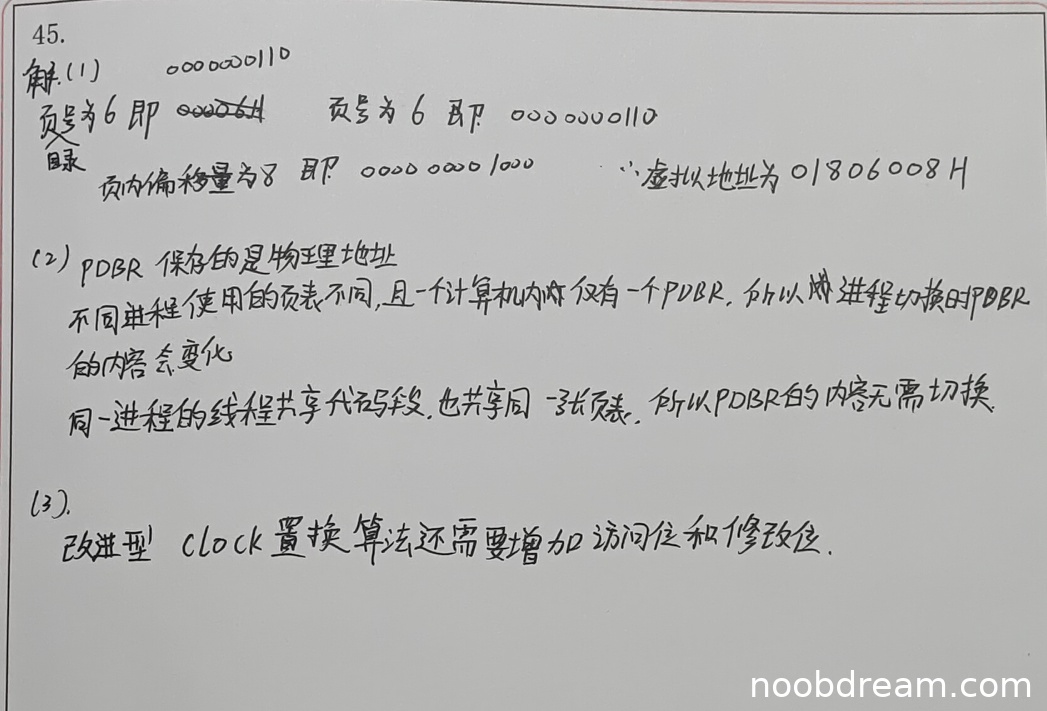 45.
解.(1) 0000000110
页目录号为6 即 00006H 页号为6 即 0000000110
页内偏移量为8 即 000000001000 ∴虚拟地址为01806008H
(2) PDBR 保存的是物理地址
不同进程使用的页表不同,且一个计算机内仅有一个PDBR,所以进程切换时PDBR
的内容会变化
同一进程的线程共享代码段,也共享同一张页表,所以PDBR的内容无需切换.
(3).
改进型 clock置换算法还需要增加访问位和修改位.
noobdream.com